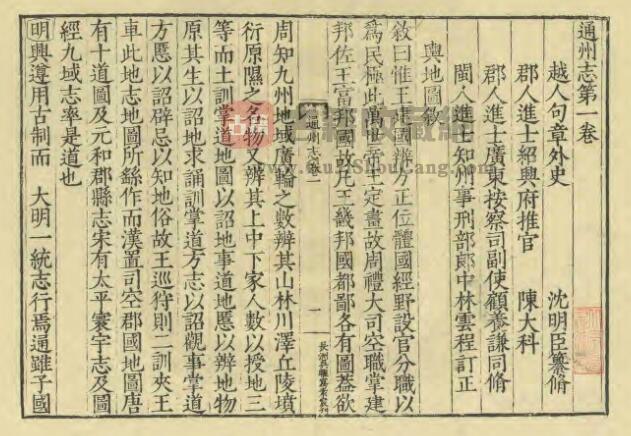 通州志第一卷
越人句章外史 沈明臣纂脩
郡人進士紹興府推官 陳大科
郡人進士廣東按察司副使顧養謙同脩
閩人進士知州事刑部郎中林雲程訂正
輿地圖敘
敘曰惟王建國辨方正位體國經野設官分職以
爲民極此萬世帝王定畫故周禮大司空職掌建
邦佐王富邦國故凡王畿邦國都鄙各有圖蓋欲
通州志卷一
一
周知九州地域廣輪之數辨其山林川澤丘陵墳
衍原隰之名物又辨其上中下家人數以授地三
等而土訓掌道地圖以詔地事道地慝以辨地物
原其生以詔地求誦訓掌道方志以詔觀事掌道
方慝以詔辟忌以知地俗故王巡狩則二訓夾王
車此地志地圖所繇作而漢置司空郡國地圖唐
有十道圖及元和郡縣志宋有太平寰宇志及圖
經九域志率是道也
明興遵用古制而 大明一統志行焉通雖子國